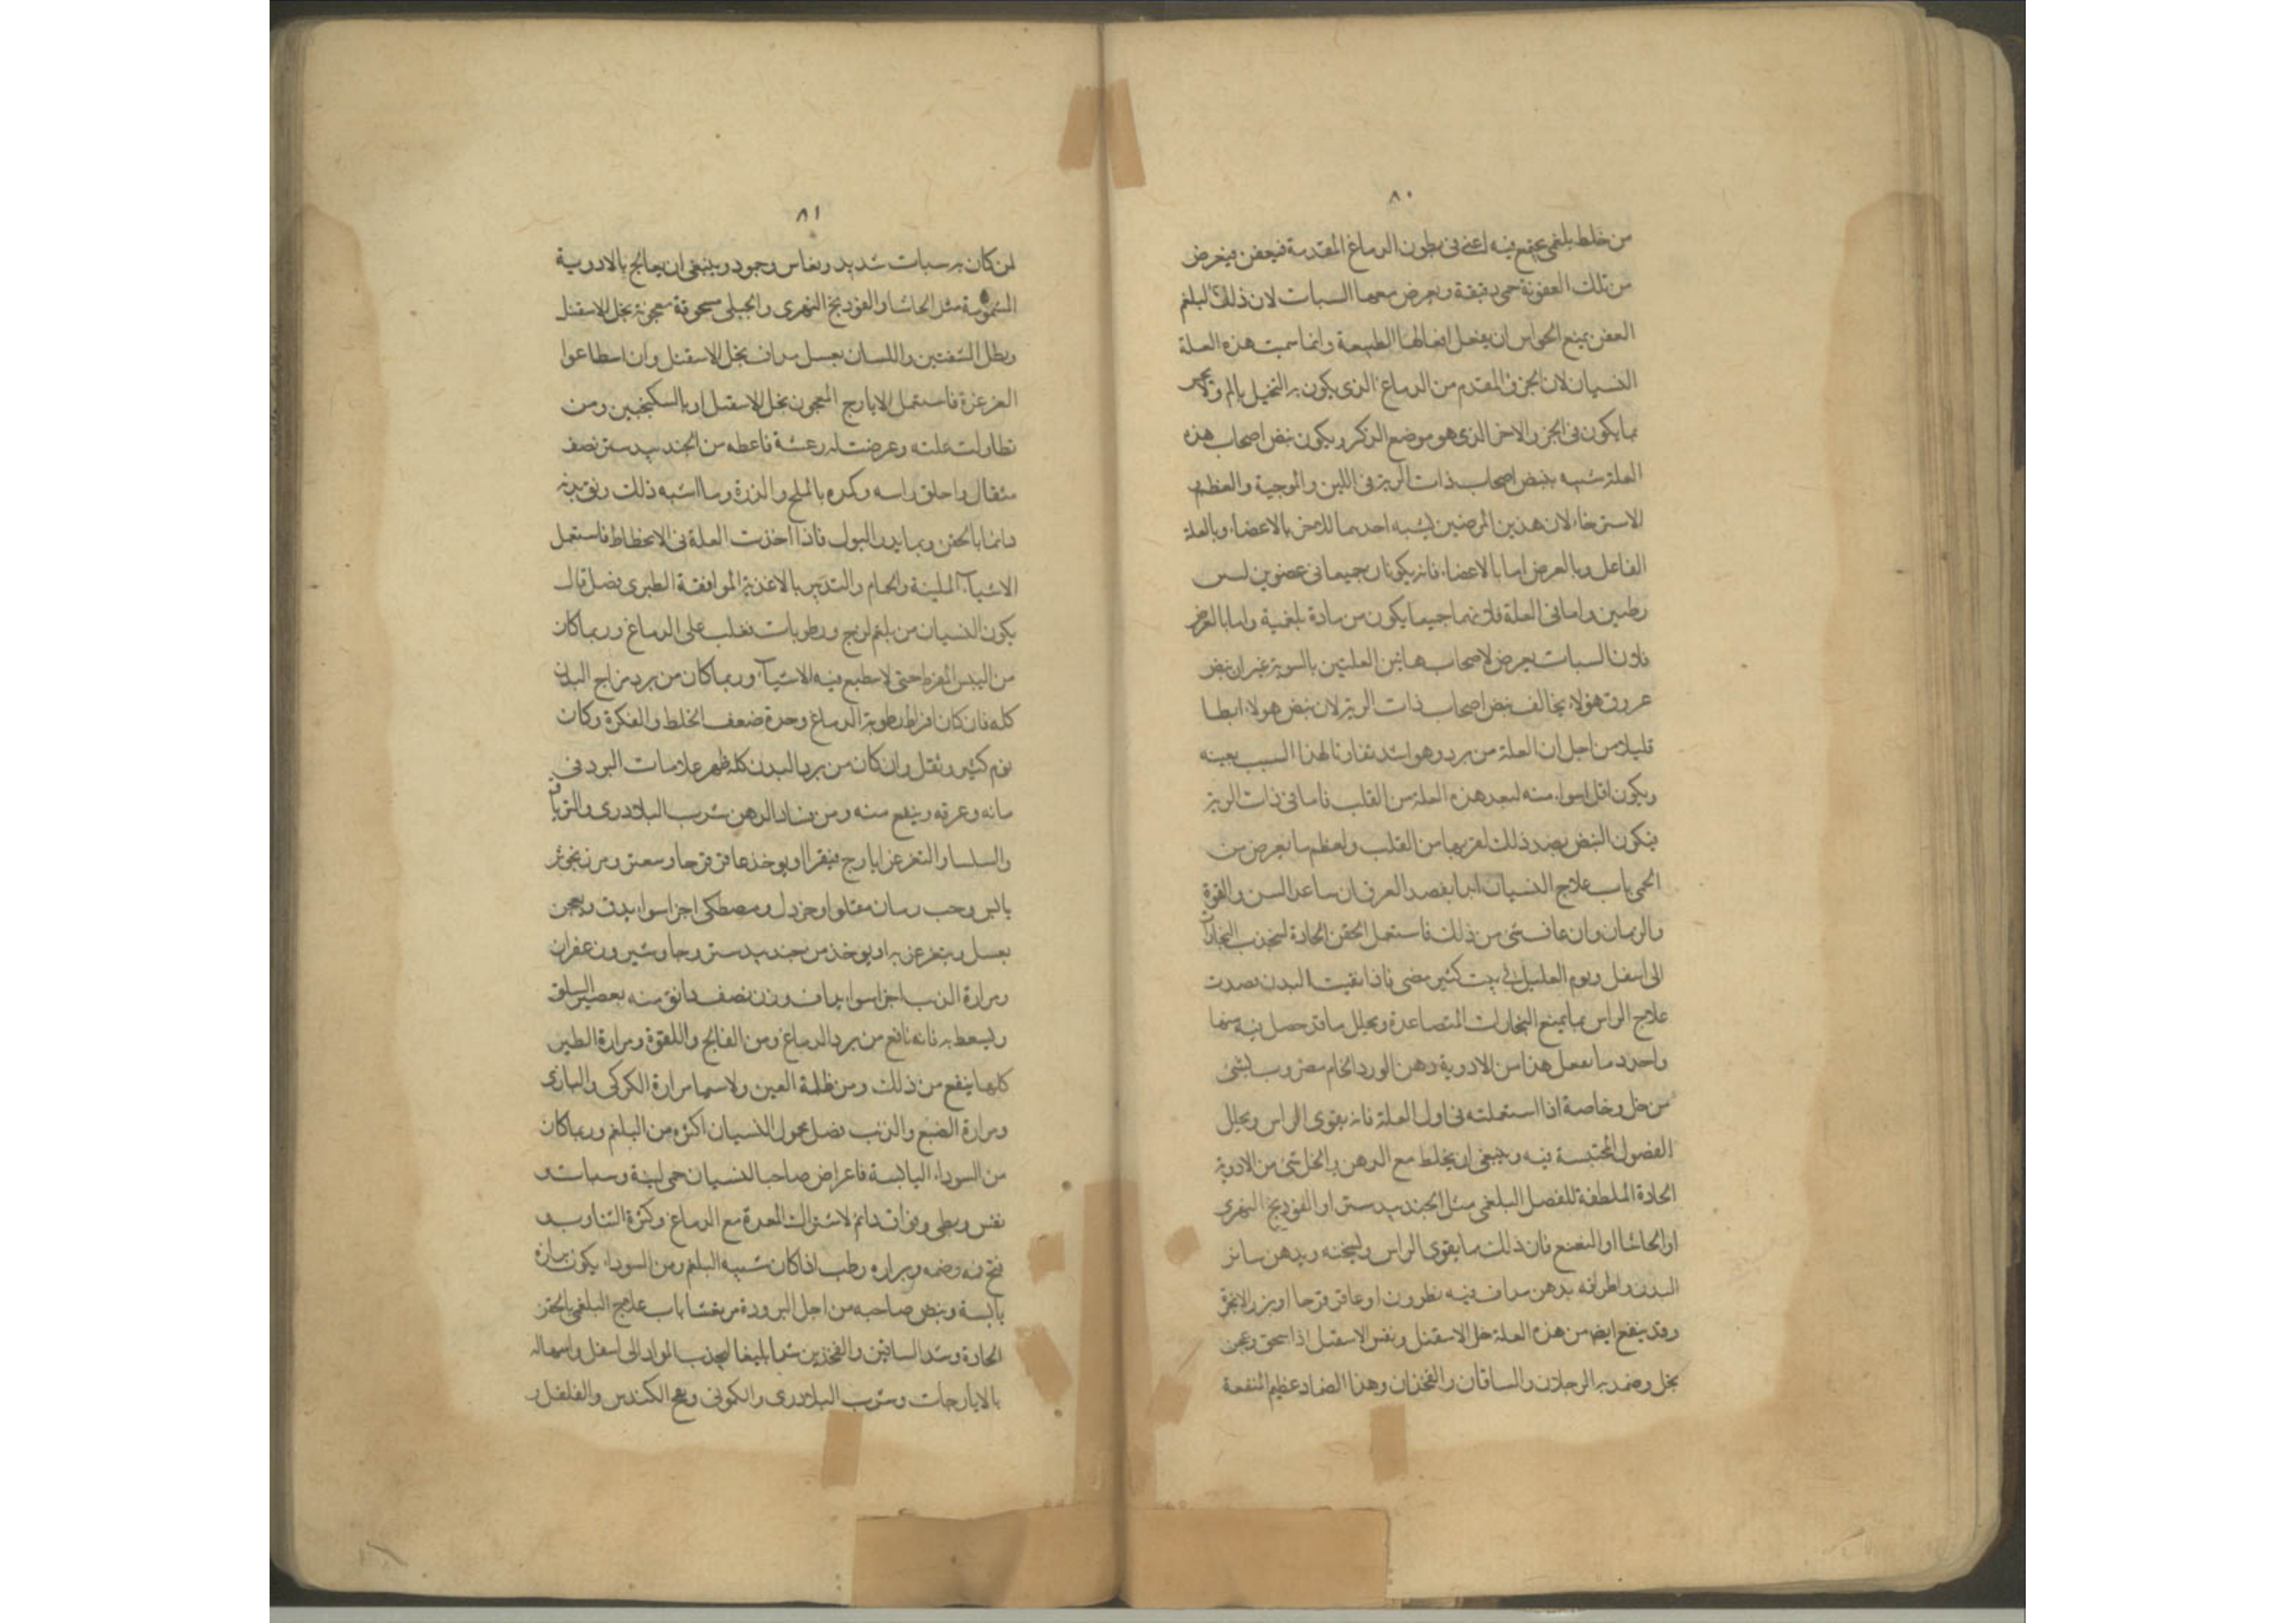 ٨٠
من خلط بلغمي يجتمع فيه اعني في بطون الدماغ المقدمة فيعفن فيعرض
من تلك العفونة حمى دقيقة ويعرض معها السبات لان ذلك البلغم
العفن يمنع الحواس ان يفعل افعالها الطبيعة وانما سميت هذه العلة
النسيان لان الجزو المقدم من الدماغ الذي يكون به التخيل يالم ولا يحس
بما يكون في الجزو الاخر الذي هو موضع الذكر ويكون نبض اصحاب هذه
العلة شبيه بنبض اصحاب ذات الرية في اللين والموجية والعظم
الاسترخا لان هذين المرضين يشبه احدهما للاخر بالاعضاء وبالعلة
الفاعل وبالعرض اما بالاعضاء فانه يكونان جميعا في عضوين لسس
رطبين واما في العلة فلانهما جميعا يكون من مادة بلغمية واما بالعرض
فلان السبات يعرض لاصحاب هاتين العلتين بالسوية غير ان نبض
عروق هولاء يخالف نبض اصحاب ذات الرية لان نبض هولاء ابطا
قليلا من اجل ان العلة من برد وهو اشد تفاوتا لهذا السبب بعينه
ويكون اقل اسواء منه لبعد هذه العلة من القلب فاما في ذات الرية
فيكون النبض بضد ذلك لقربها من القلب ولعظم ما يعرض من
الحمى باب علاج النسيان ابدا بفصد العرق ان ساعد السن والقوة
والزمان وان عاف شي من ذلك فاستعمل الحقن الحادة لتجذب البخارات
الى اسفل ونوم العليل في بيت كثير مضى فاذا نقيت البدن قصدت
علاج الراس بما يمنع البخارات المتصاعدة ويحلل ما قد حصل فيه منها
واحد ما يفعل هذا من الادوية دهن الورد الخام مضروب بشي
من خل وخاصة اذا استعملته في اول العلة فانه يقوى الراس ويحلل
الفضول المحتبسة فيه وينبغي ان يخلط مع الدهن والخل شي من الادوية
الحادة الملطفة للفضل البلغمي مثل الجندبيدستر او الفوذنج النهري
او الحاشا او النعنع فان ذلك مما يقوى الراس ويسخنه ويدهن ساير
البدن واطرافه بدهن مداف فيه نطرون او عاقر قرحا او بزر الانجرة
وقد ينفع ايضا من هذه العلة خل الاسقيل ونفس الاسقيل اذا سحق وعجن
بخل وضمد به الرجلان والساقان والفخذان وهذا الضماد عظيم المنفعة
٨١
لمن كان به سبات شديد ونعاس وجود وينبغي ان يعالج بالادوية
المشمومة مثل الحاشا والفوذنج النهري والجبلي مسحوقة معجونة بخل الاسقيل
ويطل الشفتين واللسان بعسل مداف بخل الاسقيل وان استطاعوا
الغرغرة فاستعمل الايارج المعجون بخل الاسقيل او بالسكنجبين ومن
تطاولت علته وعرضت له رعشة فاعطه من الجندبيدستر نصف
مثقال واحلق راسه وكمده بالملح والذرة وما اشبه ذلك ونق بدنه
دائما بالحقن وبما يدر البول فاذا اخذت العلة في الانحطاط فاستعمل
الاشياء الملينة والحمام والتدبير بالاغذية الموافقة الطبري فصل قال
يكون النسيان من بلغم لزج ورطوبات تغلب على الدماغ وربما كان
من اليبس المفرط حتى لا ينطبع فيه الاشياء وربما كان من برد مزاج البدن
كله فان كان افراط رطوبة الدماغ وحده ضعف الخلط والفكرة وكان
نوم كثير وثقل وان كان من برد البدن كله ظهر علامات البرد في
مائه وعرقه وينفع منه ومن فساد الذهن شرب البلادرى والترياق
والسلسا والتغرغر بايارج فيقرا او يوخذ عاقر قرحا وسعتر ومرزنجوش
يابس وحب رمان مقلو او خردل ومصطكى اجزا سواء يدق ويعجن
بعسل ويتغرغر به او يوخذ من جندبيدستر وجاوشير وزعفران
ومرارة الذيب اجزا سواء يداف وزن نصف دانق منه بعصير السلق
ويسعط به فانه نافع من برد الدماغ ومن الفالج واللقوة ومرارة الطير
كلها ينفع من ذلك ومن ظلمة العين ولا سيما مرارة الكركي والبازى
ومرارة الضبع والذيب فصل مجهول النسيان اكثره من البلغم وربما كان
من السوداء اليابسة فاعراض صاحب النسيان حمى لينة وسبات و
نفس وبطى وفواق دائم لاشتراك المعدة مع الدماغ وكثرة التثاوب و
فتح فمه وضمه وبرازه رطب اذا كان شبيه البلغم ومن السوداء يكون برازه
يابسة ونبض صاحبه من اجل البرودة مرتعشا باب علاج البلغمي بالحقن
الحادة وشد الساقين والفخذين شدا بليغا ليجذب المواد الى اسفل واسهاله
بالايارجات وشرب البلادرى والكموني وشم الكندس والفلفل و